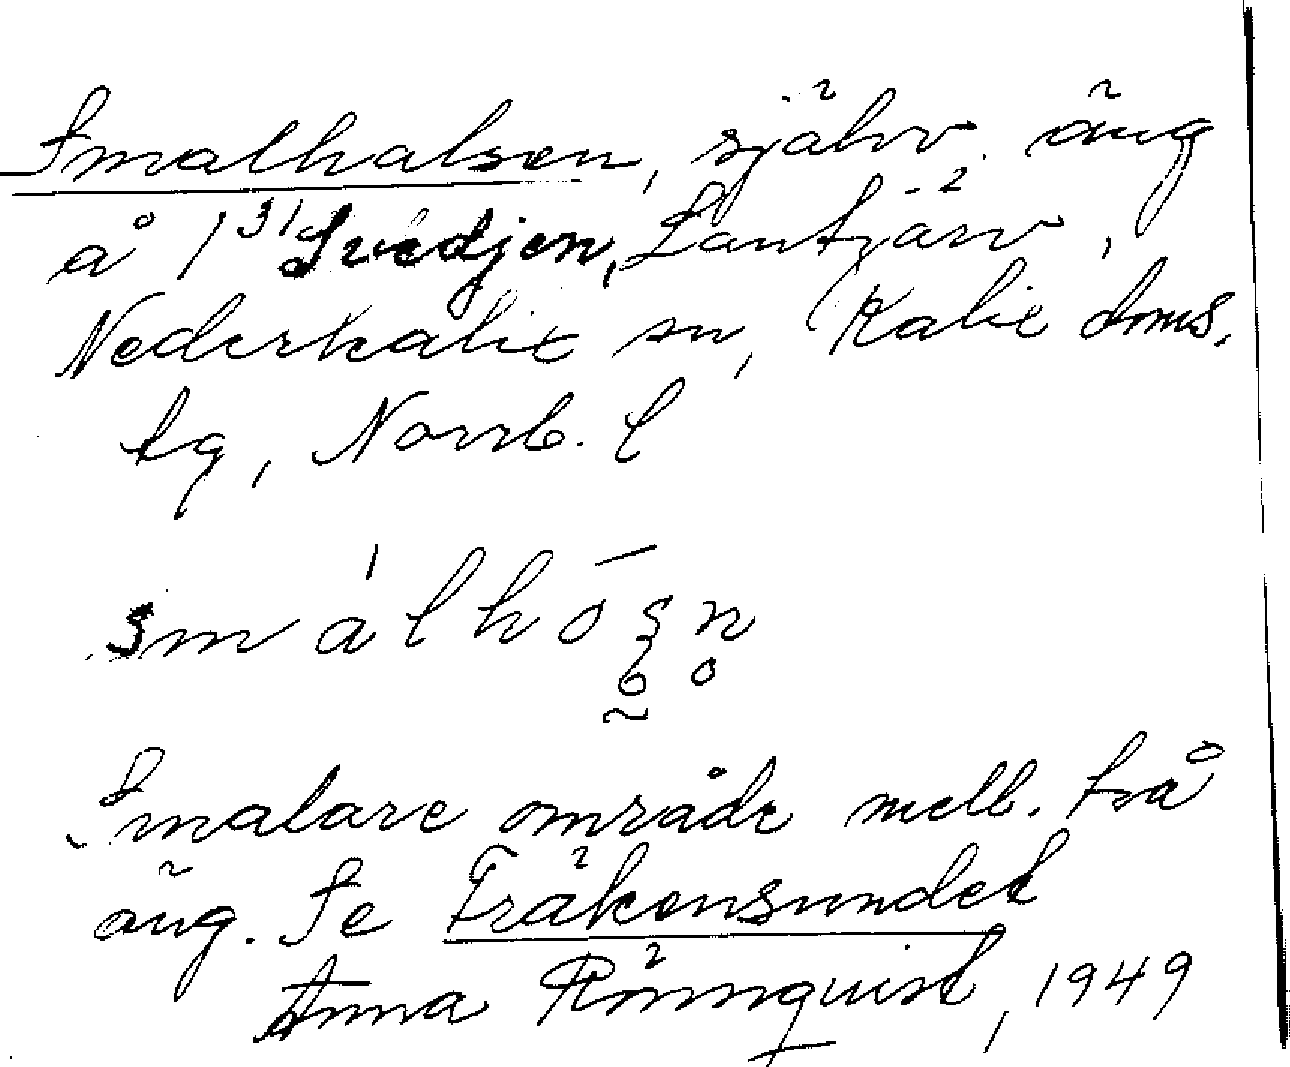 Smalhalsen, självv. äng
å 1³¹ Svedjen, Lantjärv,
Nederkalix sn, Kalix doms.
tg, Norrb. l
smálhōsn̥
Smalare område mell. två
äng. Se Fräkensundet
Anna Rönnquist, 1949